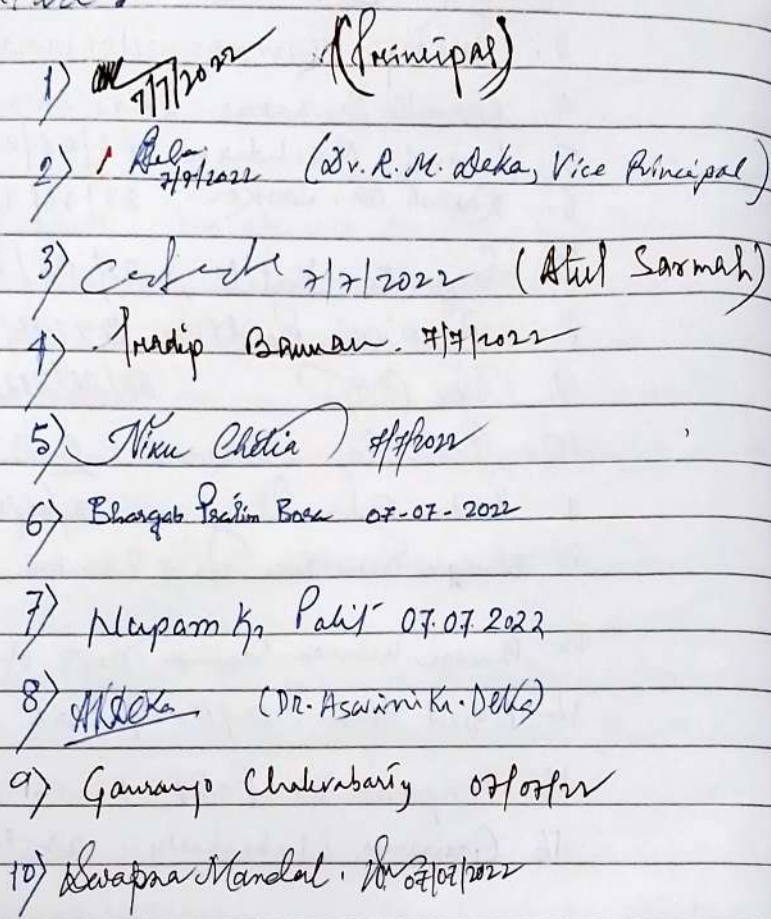 1) 7/7/2022 (Principal)
2) Deka 7/7/2022 (Dr. R. M. Deka, Vice Principal)
3) 7/7/2022 (Atul Sarmah)
4) Pradip Barman. 7/7/2022
5) Niku Chetia 7/7/2022
6) Bhargab Pratim Bora 07-07-2022
7) Nupam Kr Palit 07.07.2022
8) AKDeka (DR. Aswini Kr. Deka)
9) Gauranga Chakrabarty 07/07/22
10) Swapna Mandal. 07/07/2022